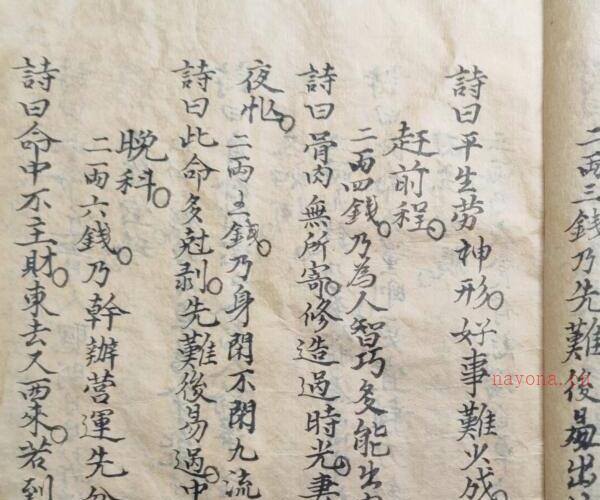 二兩三錢乃先難後易出
詩曰平生劳神形。好事難少成
赶前程。
二兩四錢乃為人智巧多能
詩曰骨肉無所寄。修造過時光。妻
夜忙。
二兩五錢乃身閑不閑九流
詩曰此命多尅剥。先難後易過。中
晚科。
二兩六錢乃幹辦营運先
詩曰命中不主財。東去又西來。若到
nayona.cn